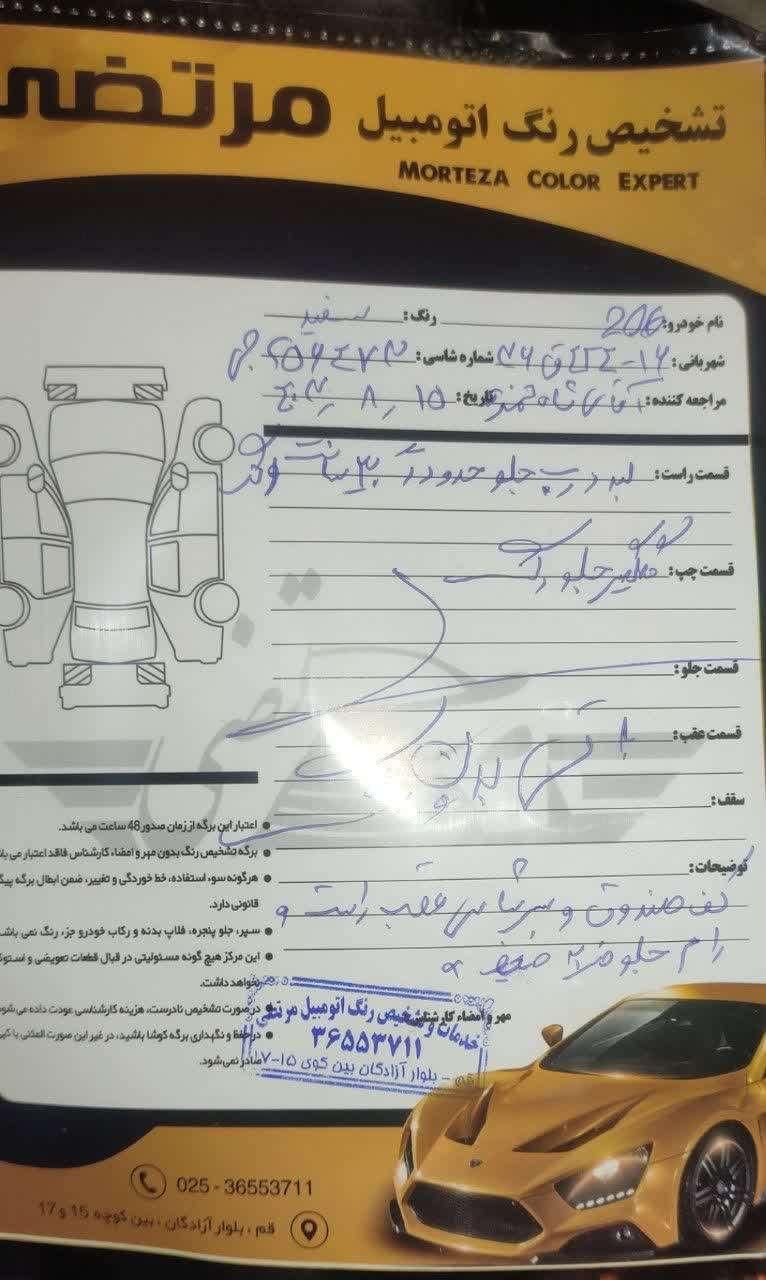 تشخیص رنگ اتومبیل مرتضی
MORTEZA COLOR EXPERT
نام خودرو: 206 رنگ: سفید
شهربانی: ۱۶-
شماره شاسی:
مراجعه کننده: آقای
تاریخ: ۱۵ ر ۸ ر
قسمت راست: لبه درب جلو حدوداً ۳۰ سانت
قسمت چپ: گلگیر جلو رنگ
قسمت جلو:
قسمت عقب:
بدون رنگ
سقف:
توضیحات:
کف صندوق و سرشاسی عقب راست و
رام جلو
اعتبار این برگه از زمان صدور 48 ساعت می باشد.
برگه تشخیص رنگ بدون مهر و امضاء کارشناس فاقد اعتبار می با
هرگونه سوء استفاده، خط خوردگی و تغییر، ضمن ابطال برگه پیگ
قانونی دارد.
سپر، جلو پنجره، فلاپ بدنه و رکاب خودرو جزء رنگ نمی باشد
این مرکز هیچ گونه مسئولیتی در قبال قطعات تعویضی و استوک
نخواهد داشت.
در صورت تشخیص نادرست، هزینه کارشناسی عودت داده می شود
در حفظ و نگهداری برگه کوشا باشید، در غیر این صورت المثنی یا کپی
صادر نمی شود.
مهر و امضاء کارشناس
خدمات و تشخیص رنگ اتومبیل مرتضی
۳۶۵۵۳۷۱۱
قم - بلوار آزادگان بین کوی ۱۵-۱۷
025 - 36553711
قم ، بلوار آزادگان ، بین کوچه 15 و 17